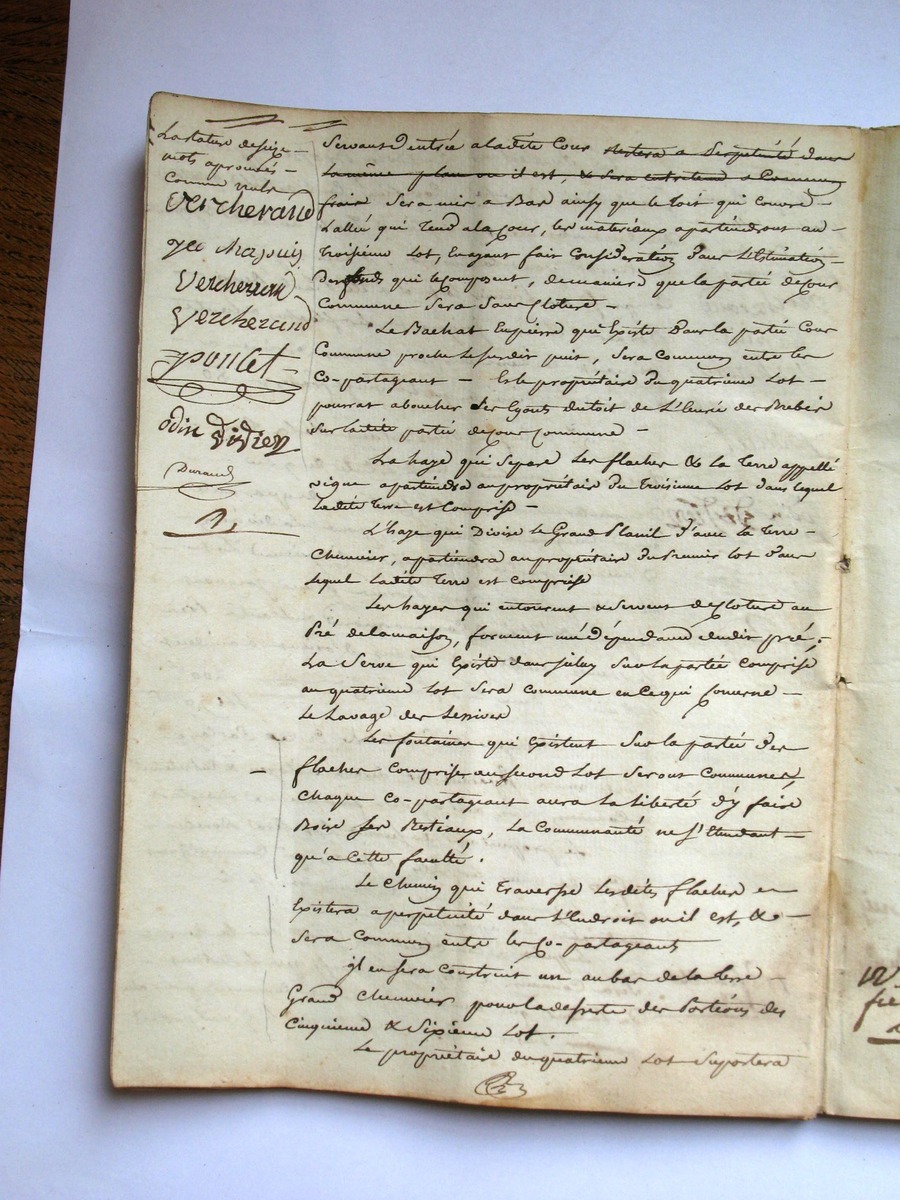 La rature de seize
mots aprouvés
Comme nuls
Vercherand
Vercherand
Vercherand
poncet
odin Didier
Durand
Servant D'entrée a ladite Cour restera a Perpetuité dans
La même place ou il est, & sera entretenu a Commun
frais Sera mis a Bas ainsy que le toit qui couvre
L'allée qui Tend a la Cour, les materiaux apartiendront au
Troisieme Lot, En ayant fait Considération dans L'Estimation
Des fonds qui le Composent, de maniere que la partie de Cour
Commune Sera Sans Cloture
Le Bachat En pierre qui Existe Dans la partie Cour
Commune proche Le susdit puit, Sera Commun entre les
Co-partageant Et le propriétaire du quatrieme Lot
pourrat aboucher Les Egouts du toit de L'Ecurie des Brebis
Sur ladite partie de Cour Commune
La haye qui Separe Les flaches & La Terre appellé
vigne apartiendra au propriétaire du Troisieme Lot dans lequel
Ladite Terre est Comprise
L'haye qui Divise le Grand d'avec la Terre
Chenevier, apartiendra au propriétaire du Premier Lot dans
Lequel Ladite Terre est Comprise
Les hayes qui entourent & servent de Cloture au
Pré de la maison, forment une dépendance dudit pré;
La Serve qui Existe dans Iceluy Sur la partie Comprise
au quatrieme Lot Sera Commune en Ce qui Concerne
Le Lavage des Lessives
Les fontaines qui Existent Sur la partie des
flaches Comprise au second Lot Seront Communes,
Chaque Co-partageant aura La liberté d'y faire
Boire ses Bestiaux, La Communauté ne s'Etendant
qu'a Cette faculté.
Le Chemin qui traverse Lesdites flaches en
Existera a perpetuité dans L'Endroit ou il est, &
Sera Commun entre les Co-partageants
jl en sera Construit un au bas de la Terre
Grand Chenevier pour la deserte des Portions des
Cinquieme & Sixieme Lot.
Le propriétaire du quatrieme Lot Suportera